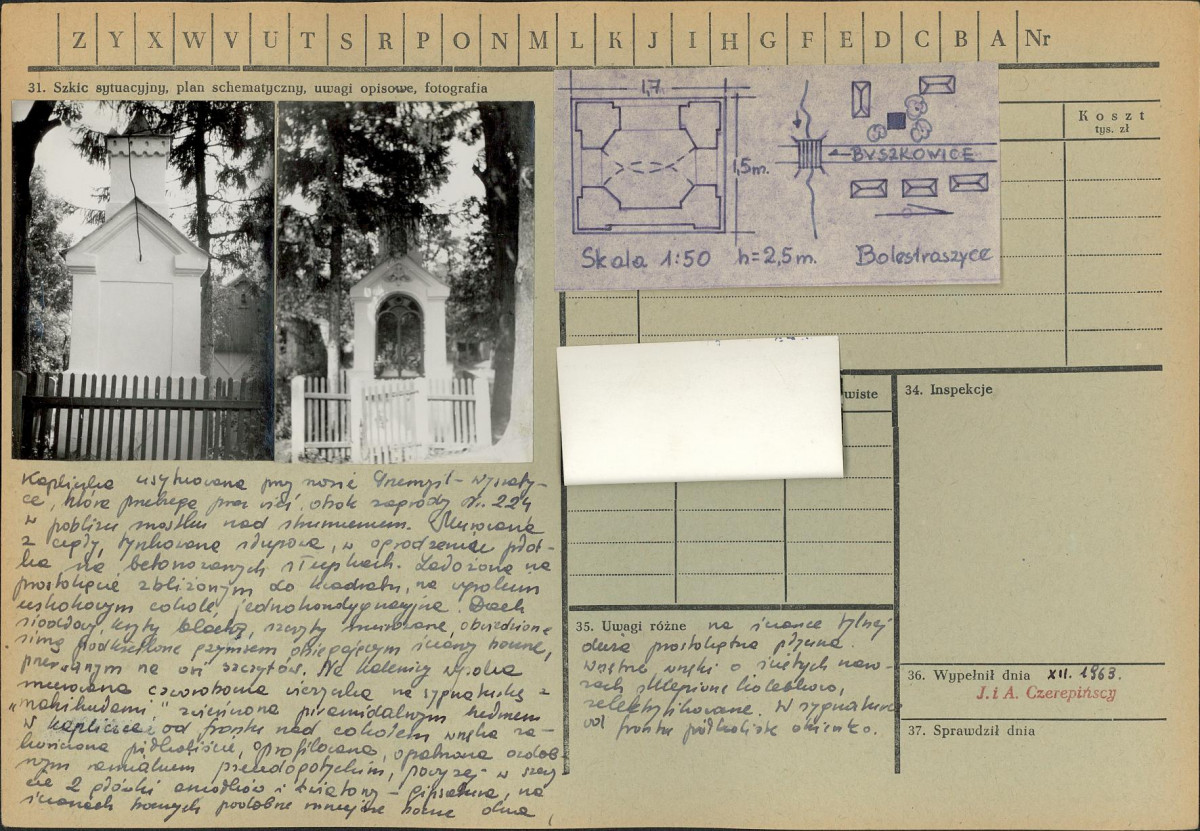 Z Y X W V U T S R P O N M L K J I H G F E D C B A Nr
31. Szkic sytuacyjny, plan schematyczny, uwagi opisowe, fotografia
1,7
1,5m.
BUSZKOWICE
Skala 1:50 h=2,5m. Bolestraszyce
Koszt
tys. zł
wiste
34. Inspekcje
Kapliczka usytuowana przy szosie Przemyśl - Wyszaty-
ce, która przebiega przez wieś, obok zagrody nr. 224
w pobliżu mostku nad strumieniem. Murowana
z cegły, tynkowana słupowa, w ogrodzeniu płot-
ka na betonowych słupkach. Założona na
prostokącie zbliżonym do kwadratu, na wysokim
uskokowym cokole, jednokondygnacyjna. Dach
siodłowy, kryty blachą, szczyty murowane, obwiedzione
simą podkreślone gzymsem obiegającym ściany boczne,
przerwanym na osi szczytów. Na kalenicy wysoka
murowana czworoboczna wieżyczka na sygnaturkę z
"machikułami" zwieńczona piramidalnym hełmem
W kapliczce od frontu nad cokołem wnęka za-
kończona półkoliście, oprofilowana, opatrzona ozdob-
nym pseudogotyckim, powyżej w szczy-
cie 2 główki aniołków i kwiatony - gipsatura, na
ścianach bocznych podobne mniejsze boczne okna,
35. Uwagi różne na ściance tylnej
duża prostokątna płycina.
Wnętrze wnęki o ściętych naro-
żach sklepione kolebkowo,
zelektryfikowane. W sygnaturce
od frontu półkoliste okienko.
36. Wypełnił dnia XII. 1963.
J. i A. Czerepińscy
37. Sprawdził dnia